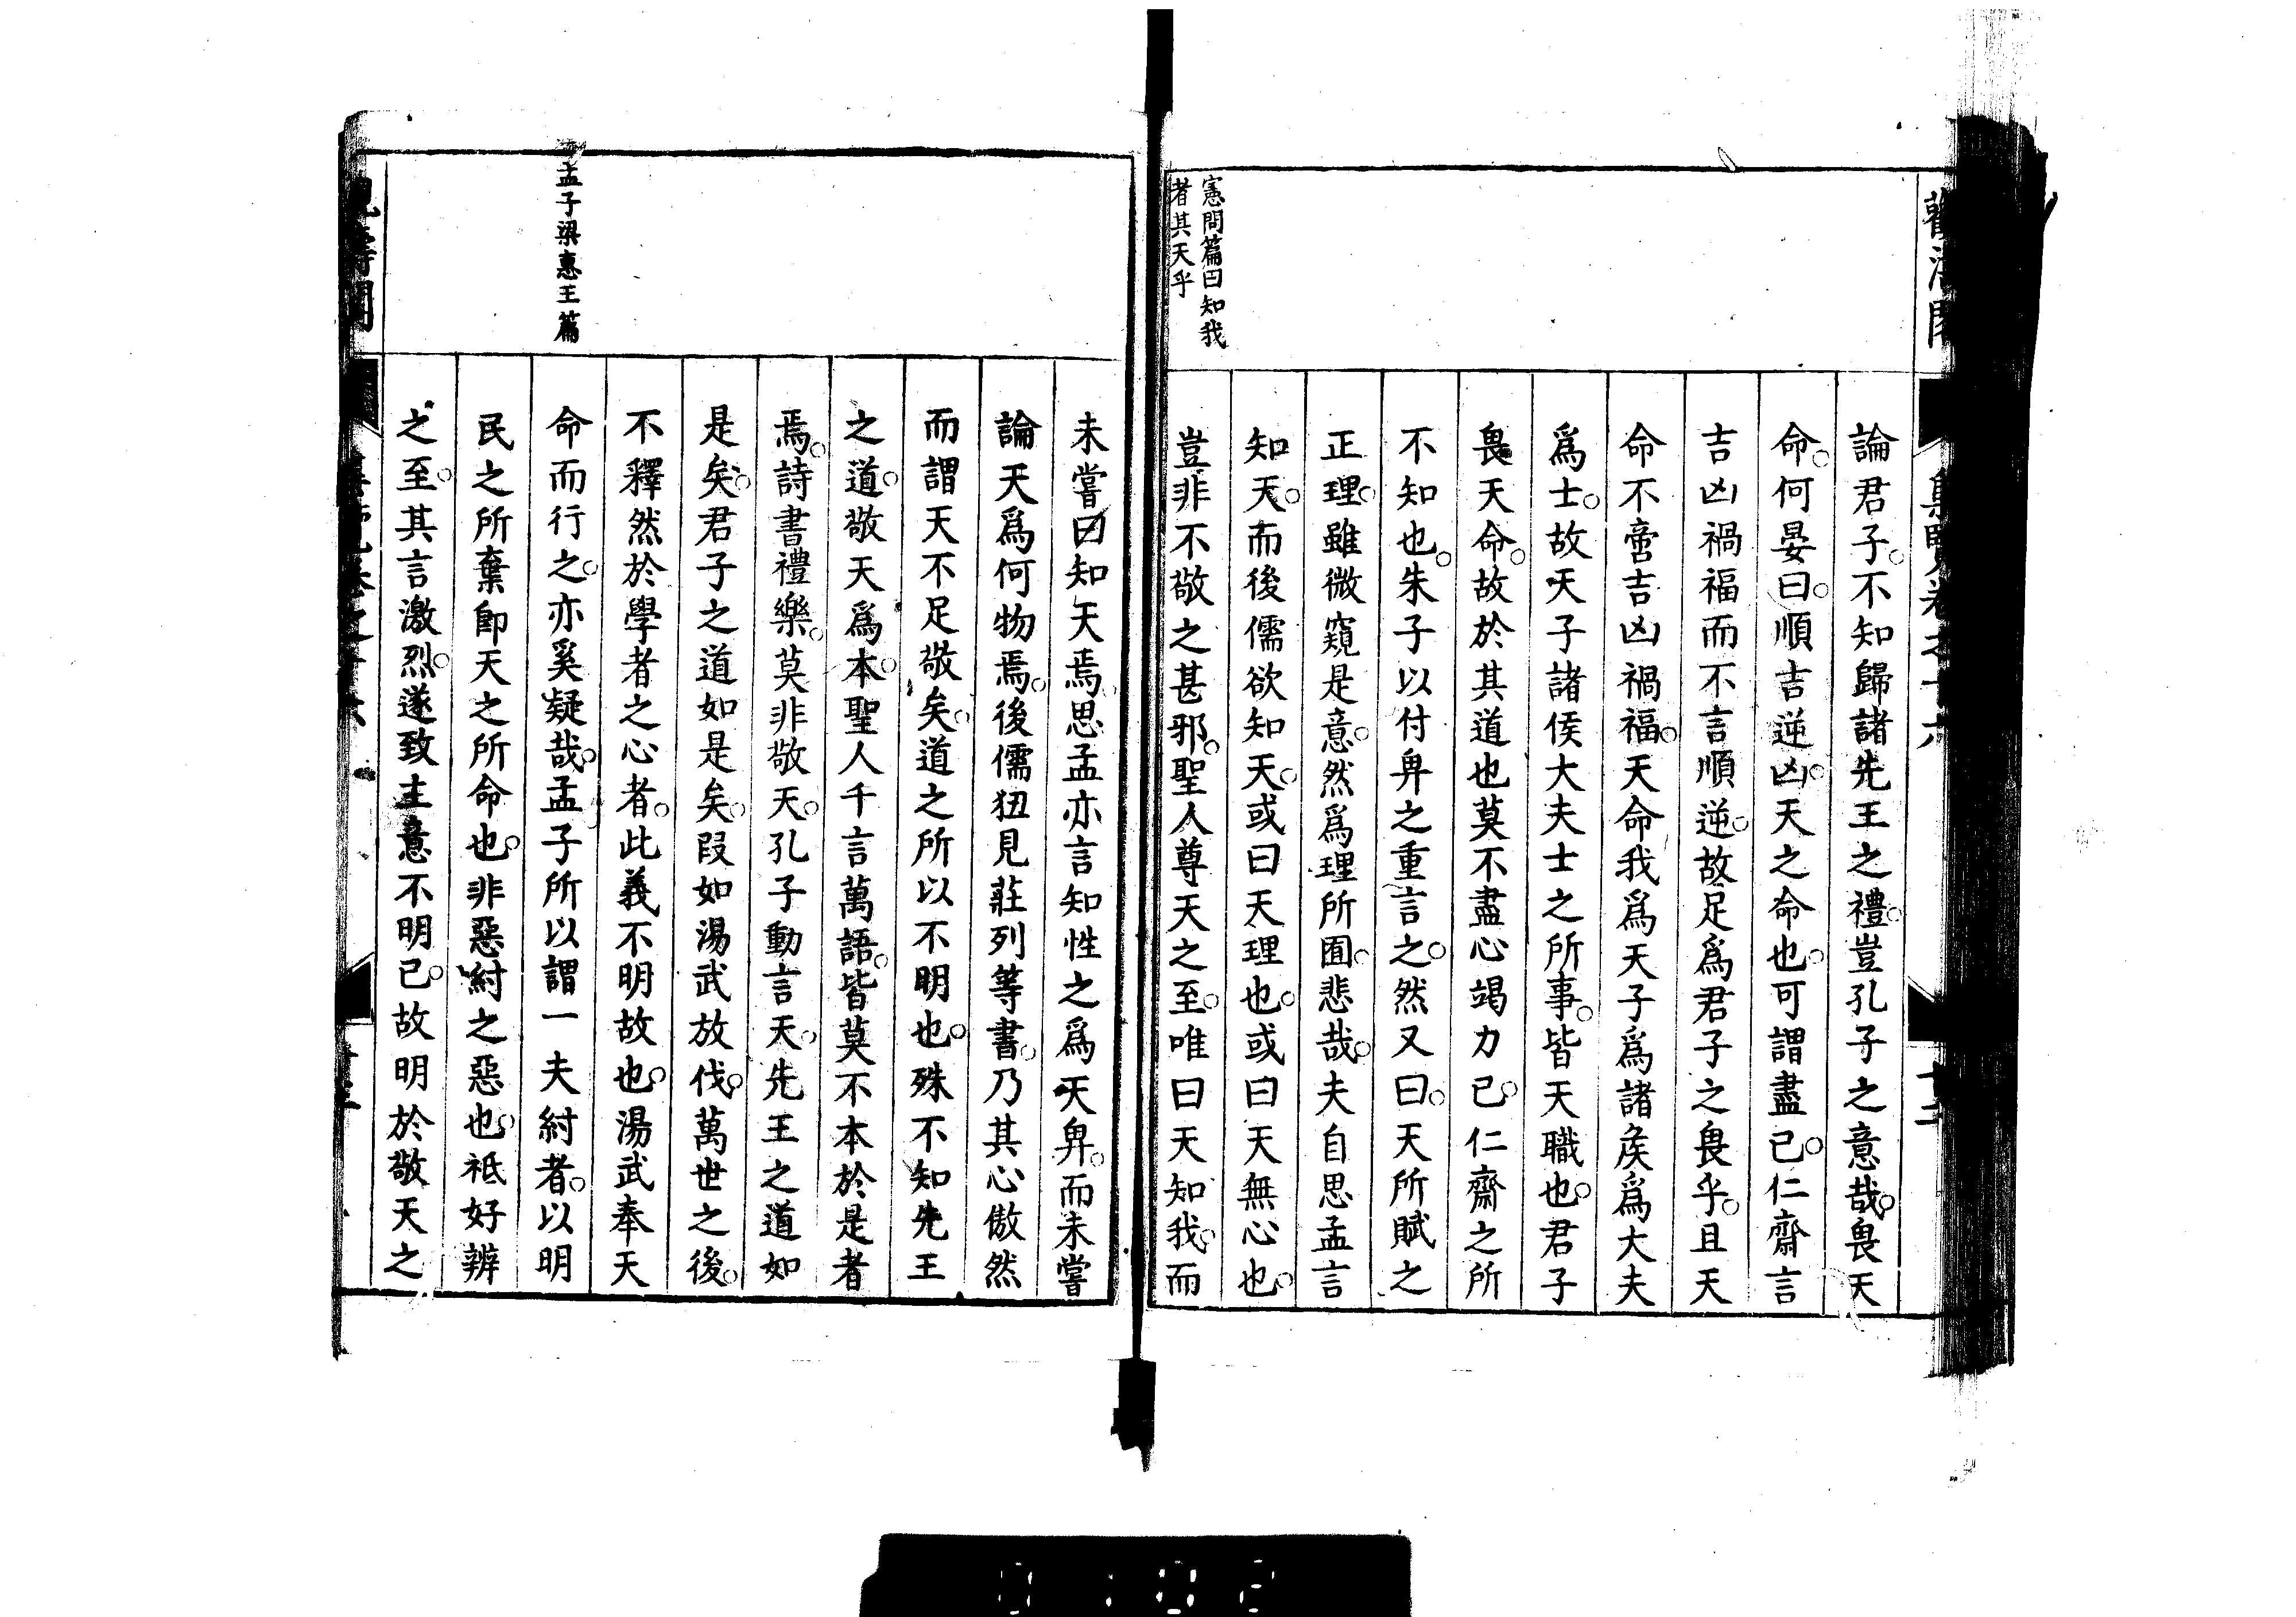 論君子。不知歸諸先王之禮。豈孔子之意哉。畏天
命。何晏曰。順吉逆凶。天之命也。可謂盡已。仁齋言
吉凶禍福而不言順逆。故足爲君子之畏乎。且天
命不啻吉凶禍福。天命我爲天子爲諸矦爲大夫
爲士。故天子諸侯大夫士之所事。皆天職也。君子
畏天命。故於其道也莫不盡心竭力已。仁齋之所
不知也。朱子以付畀之重言之。然又曰。天所賦之
正理。雖微窺是意。然爲理所囿。悲哉。夫自思孟言
知天。而後儒欲知天。或曰天理也。或曰天無心也。
豈非不敬之甚邪。聖人尊天之至。唯曰天知我。而
憲問篇曰知我
者其天乎
未嘗曰知天焉。思孟亦言知性之爲天畀。而未嘗
論天爲何物焉。後儒狃見莊列等書。乃其心傲然
而謂天不足敬矣。道之所以不明也。殊不知先王
之道。敬天爲本。聖人千言萬語。皆莫不本於是者
焉。詩書禮樂。莫非敬天。孔子動言天。先王之道如
是矣。君子之道如是矣。叚如湯武放伐。萬世之後。
不釋然於學者之心者。此義不明故也。湯武奉天
命而行之。亦奚疑哉。孟子所以謂一夫紂者。以明
民之所棄卽天之所命也。非惡紂之惡也。祗好辨
之至。其言激烈。遂致主意不明已。故明於敬天之
孟子梁惠王篇